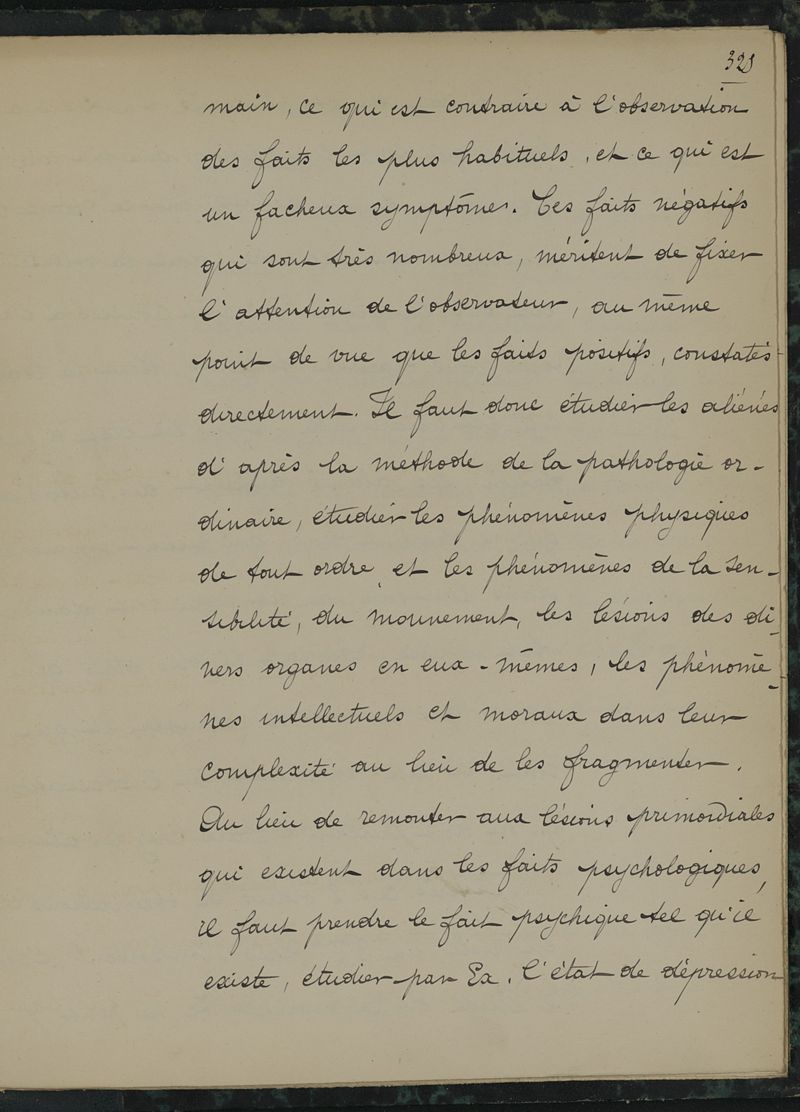 321
main, ce qui est contraire à l'observation
des faits les plus habituels, et ce qui est
un facheux symptôme. Ces faits négatifs
qui sont très nombreux, méritent de fixer
l'attention de l'observateur, au même
point de vue que les faits positifs, constatés
directement. Il faut donc étudier les aliénés
d'après la méthode de la pathologie or-
dinaire, étudier les phénomènes physiques
de tout ordre, et les phénomènes de la sen-
sibilité, du mouvement, les lésions des di-
vers organes en eux-mêmes, les phénomè-
nes intellectuels et moraux dans leur
complexité au lieu de les fragmenter.
Au lieu de remonter aux lésions primordiales
qui existent dans les faits psychologiques,
il faut prendre le fait psychique tel qu'il
existe, étudier par Ex. l'état de dépression